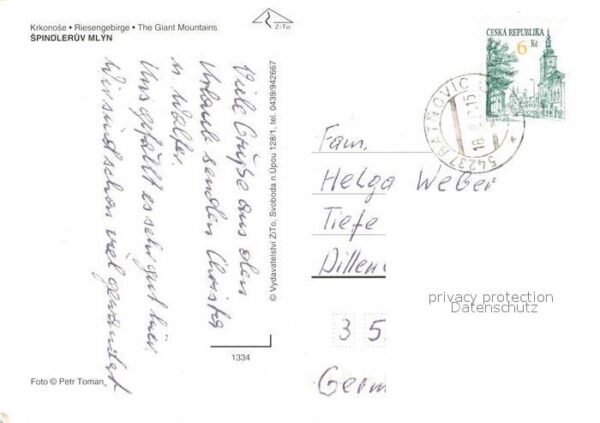 Krkonoše • Riesengebirge • The Giant Mountains
ŠPINDLERŮV MLÝN
ZiTo
ČESKÁ REPUBLIKA
6 Kč
54237 BATŇOVIC
18.
Viele Grüße aus dem
Urlaub senden Christa
u Walter.
Uns gefällt es sehr gut hier.
Wir sind schon viel gewandert
© Vydavatelství ZiTo, Svoboda n.Úpou 128/1, tel. 0439/942667
1334
Foto © Petr Toman
Fam.
Helga Weber
Tiefe
Dillen
3 5
Germ
privacy protection
Datenschutz